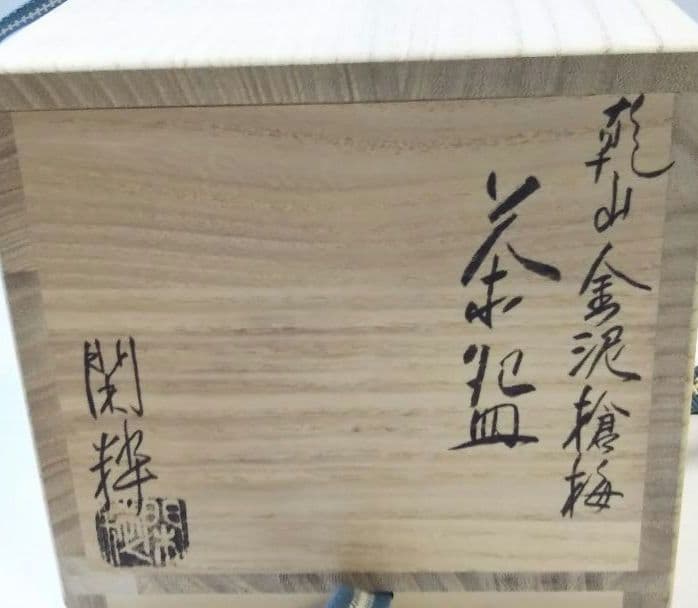 乾山金泥槍梅
茶盌
閑粋